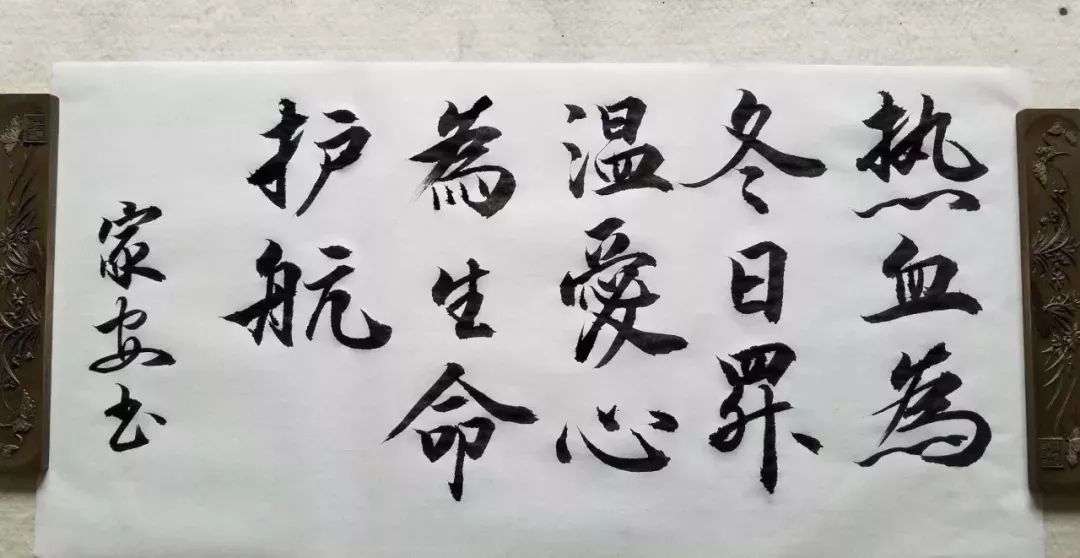 热血為
冬日昇
温愛心
為生命
护航
家安书